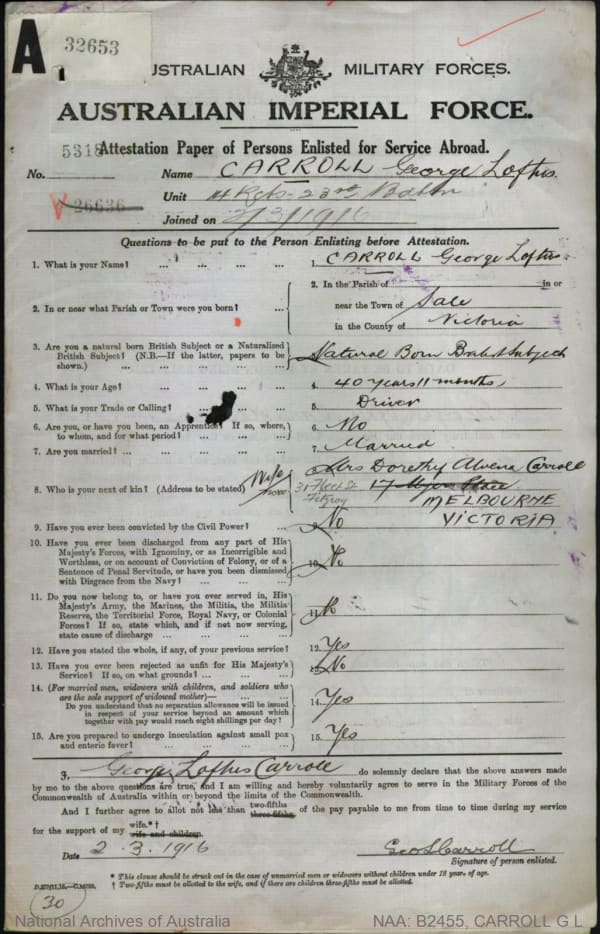 A 32653
AUSTRALIAN MILITARY FORCES.
AUSTRALIAN IMPERIAL FORCE.
Attestation Paper of Persons Enlisted for Service Abroad.
No. 5318 Name CARROLL George Loftus
V 26636 Unit 14 Rfts - 23rd Battn
Joined on 2/3/1916
Questions to be put to the Person Enlisting before Attestation.
1. What is your Name? ... ... ... ... 1. CARROLL George Loftus
2. In or near what Parish or Town were you born? ... 2. In the Parish of in or
near the Town of Sale
in the County of Victoria
3. Are you a natural born British Subject or a Naturalized
British Subject? (N.B.—If the latter, papers to be
shown.) ... ... ... ... ... Natural Born British Subject
4. What is your Age? ... ... ... ... 4. 40 years 11 months
5. What is your Trade or Calling? ... ... ... 5. Driver
6. Are you, or have you been, an Apprentice? If so, where,
to whom, and for what period? ... ... ... 6. No
7. Are you married? ... ... ... ... 7. Married
8. Who is your next of kin? (Address to be stated) Wife Mrs Dorothy Alvena Carroll
31 Fleet St 17 Place
Fitzroy MELBOURNE
VICTORIA
9. Have you ever been convicted by the Civil Power? ... 9. No
10. Have you ever been discharged from any part of His
Majesty's Forces, with Ignominy, or as Incorrigible and
Worthless, or on account of Conviction of Felony, or of a
Sentence of Penal Servitude, or have you been dismissed
with Disgrace from the Navy? ... ... ... 10. No
11. Do you now belong to, or have you ever served in, His
Majesty's Army, the Marines, the Militia, the Militia
Reserve, the Territorial Force, Royal Navy, or Colonial
Forces? If so, state which, and if not now serving,
state cause of discharge ... ... ... 11. No
12. Have you stated the whole, if any, of your previous service? 12. Yes
13. Have you ever been rejected as unfit for His Majesty's
Service? If so, on what grounds? ... ... ... 13. No
14. (For married men, widowers with children, and soldiers who
are the sole support of widowed mother)—
Do you understand that no separation allowance will be issued
in respect of your service beyond an amount which
together with pay would reach eight shillings per day? 14. Yes
15. Are you prepared to undergo inoculation against small pox
and enteric fever? ... ... ... ... 15. Yes
I, George Loftus Carroll do solemnly declare that the above answers made
by me to the above questions are true, and I am willing and hereby voluntarily agree to serve in the Military Forces of the
Commonwealth of Australia within or beyond the limits of the Commonwealth.
And I further agree to allot not less than two-fifths three-fifths of the pay payable to me from time to time during my service
for the support of my wife.*† wife and children.
Date 2. 3. 1916 Geo L Carroll
Signature of person enlisted.
* This clause should be struck out in the case of unmarried men or widowers without children under 18 years of age.
† Two-fifths must be allotted to the wife, and if there are children three-fifths must be allotted.
30
National Archives of Australia NAA: B2455, CARROLL G L